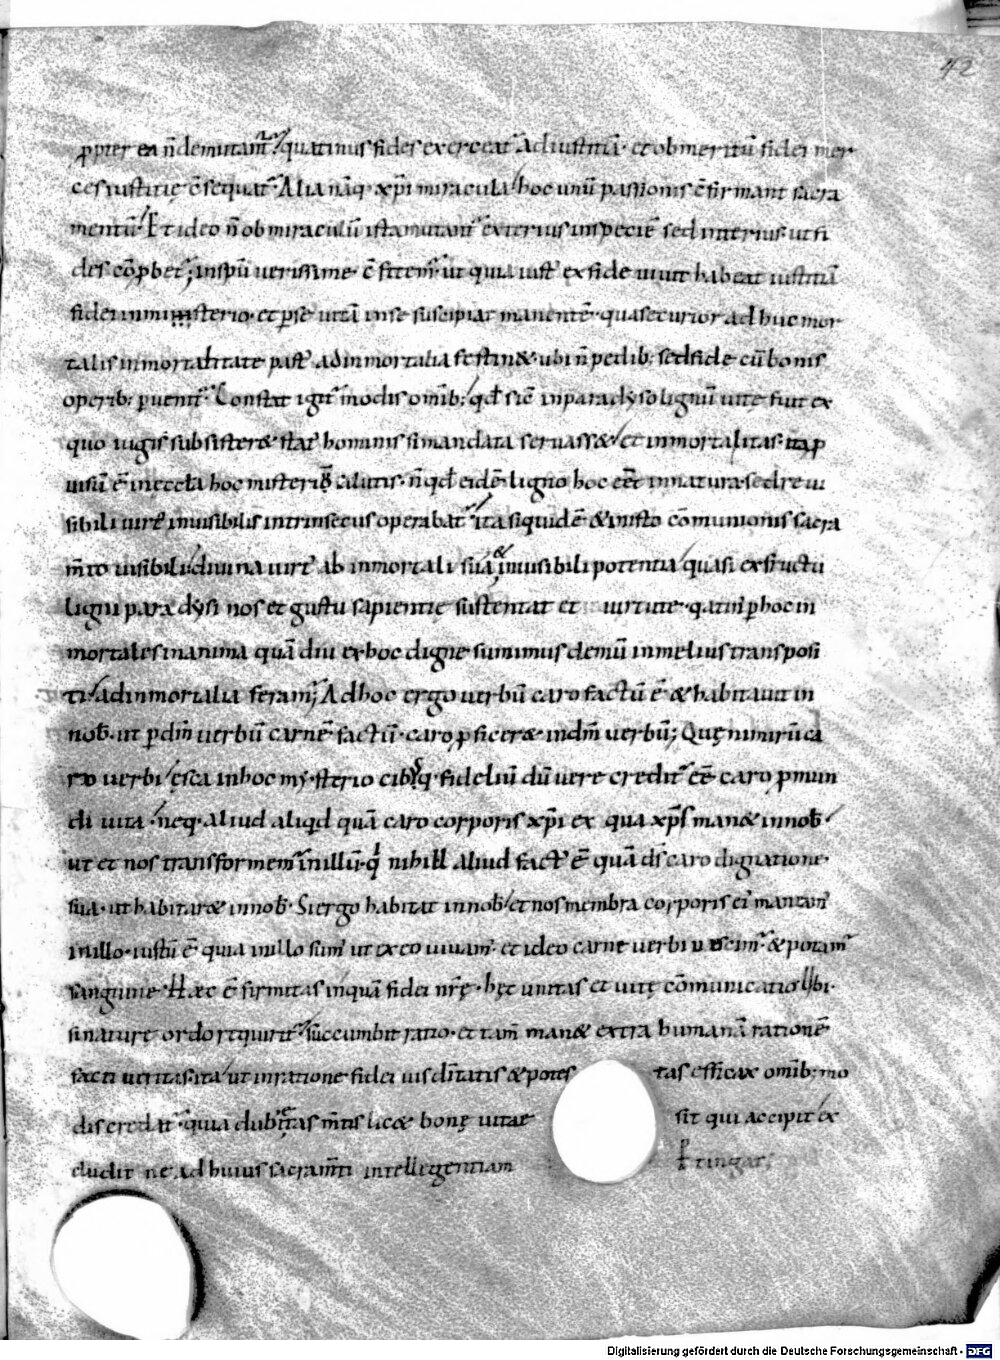 42
ꝓpter ea n̄ demutant̃ quatinus fides exerceat̃ ad iustitiā · et ob meritū fidei mer
ces iustitię c̄sequat̃ · Alia nāq; xp̄i miracula hoc unū passionis c̄firmant sacra
mentū · Et ideo n̄ ob miraculū ista mutant̃ exterius in specie sed interius · ut fi
des cōprobet̃ ; in sp̄u uerissime c̄fitem̃ ut quia iust' ex fide uiuit habeat iustitiā
fidei in ministerio · et p se uitā in se suscipiat manentē · qua securior adhuc mor
talis inmortalitate past' ad inmortalia festin& · ubi n̄ pedib; sed fide cū bonis
operib; puenit̃ · Constat igit̃ modis om̄ib; qđ sic in paradyso lignū uitę fuit ex
quo iugis subsister& stat' hominis si mandata seruass& et inmortalitas · ita ꝓ
uisū ē in ęccła hoc misteriū salutis · n̄ qđ eidē ligno hoc eēt in natura · sed re ui
sibili uirt' inuisibilis intrinsecus operabat̃ ita siquidē & in isto cōmunionis sacra
m̄to uisibili diuina uirt' ab inmortali sua & inuisibili potentia quasi ex fructu
ligni paradysi nos et gustu sapientię sustentat et uirtute · qatin' p hoc in
mortales in anima quā diu ex hoc digne sumimus demū in melius transposi
ti ad inmortalia feram̃ ; Ad hoc ergo uerbū caro factū ē & habitauit in
nob̄ · ut p dm̄ uerbū carnē factū · caro ꝓficer& in dm̄ uerbū ; Quę nimirū ca
ro uerbi esca in hoc mysterio cibusq; fideliū dū uere credit̃ eē caro ꝓ mun
di uita · neq; aliud aliqd quā caro corporis xp̄i ex qua xp̄s man& in nob̄
ut et nos transformem̃ in illū · q nihil aliud fact' ē quā ds̄ caro dignatione
sua · ut habitar& in nob̄ · Si ergo habitat in nob̄ et nos membra corporis ei' maneam'
in illo · iustū ē quia in illo sum' ut ex eo uiuam' · et ideo carne uerbi uescim̃ & potam̃
sanguine · Haec ē firmitas inquā fidei nr̄ę · hęc unitas et uitę cōmunicatio Vbi
si naturę ordo requirit̃ succumbit ratio · et tam̄ man& extra humanā rationē
facti ueritas · ita ut in ratione fidei uis diuinitatis & potestas efficax om̄ib; mo
dis credat̃ · quia dubietas m̄tis lic& bonę uitae sit qui accipit ex
cludit ne ad huius sacram̄ti intellegentiam ptingat ;
Digitalisierung gefördert durch die Deutsche Forschungsgemeinschaft - DFG